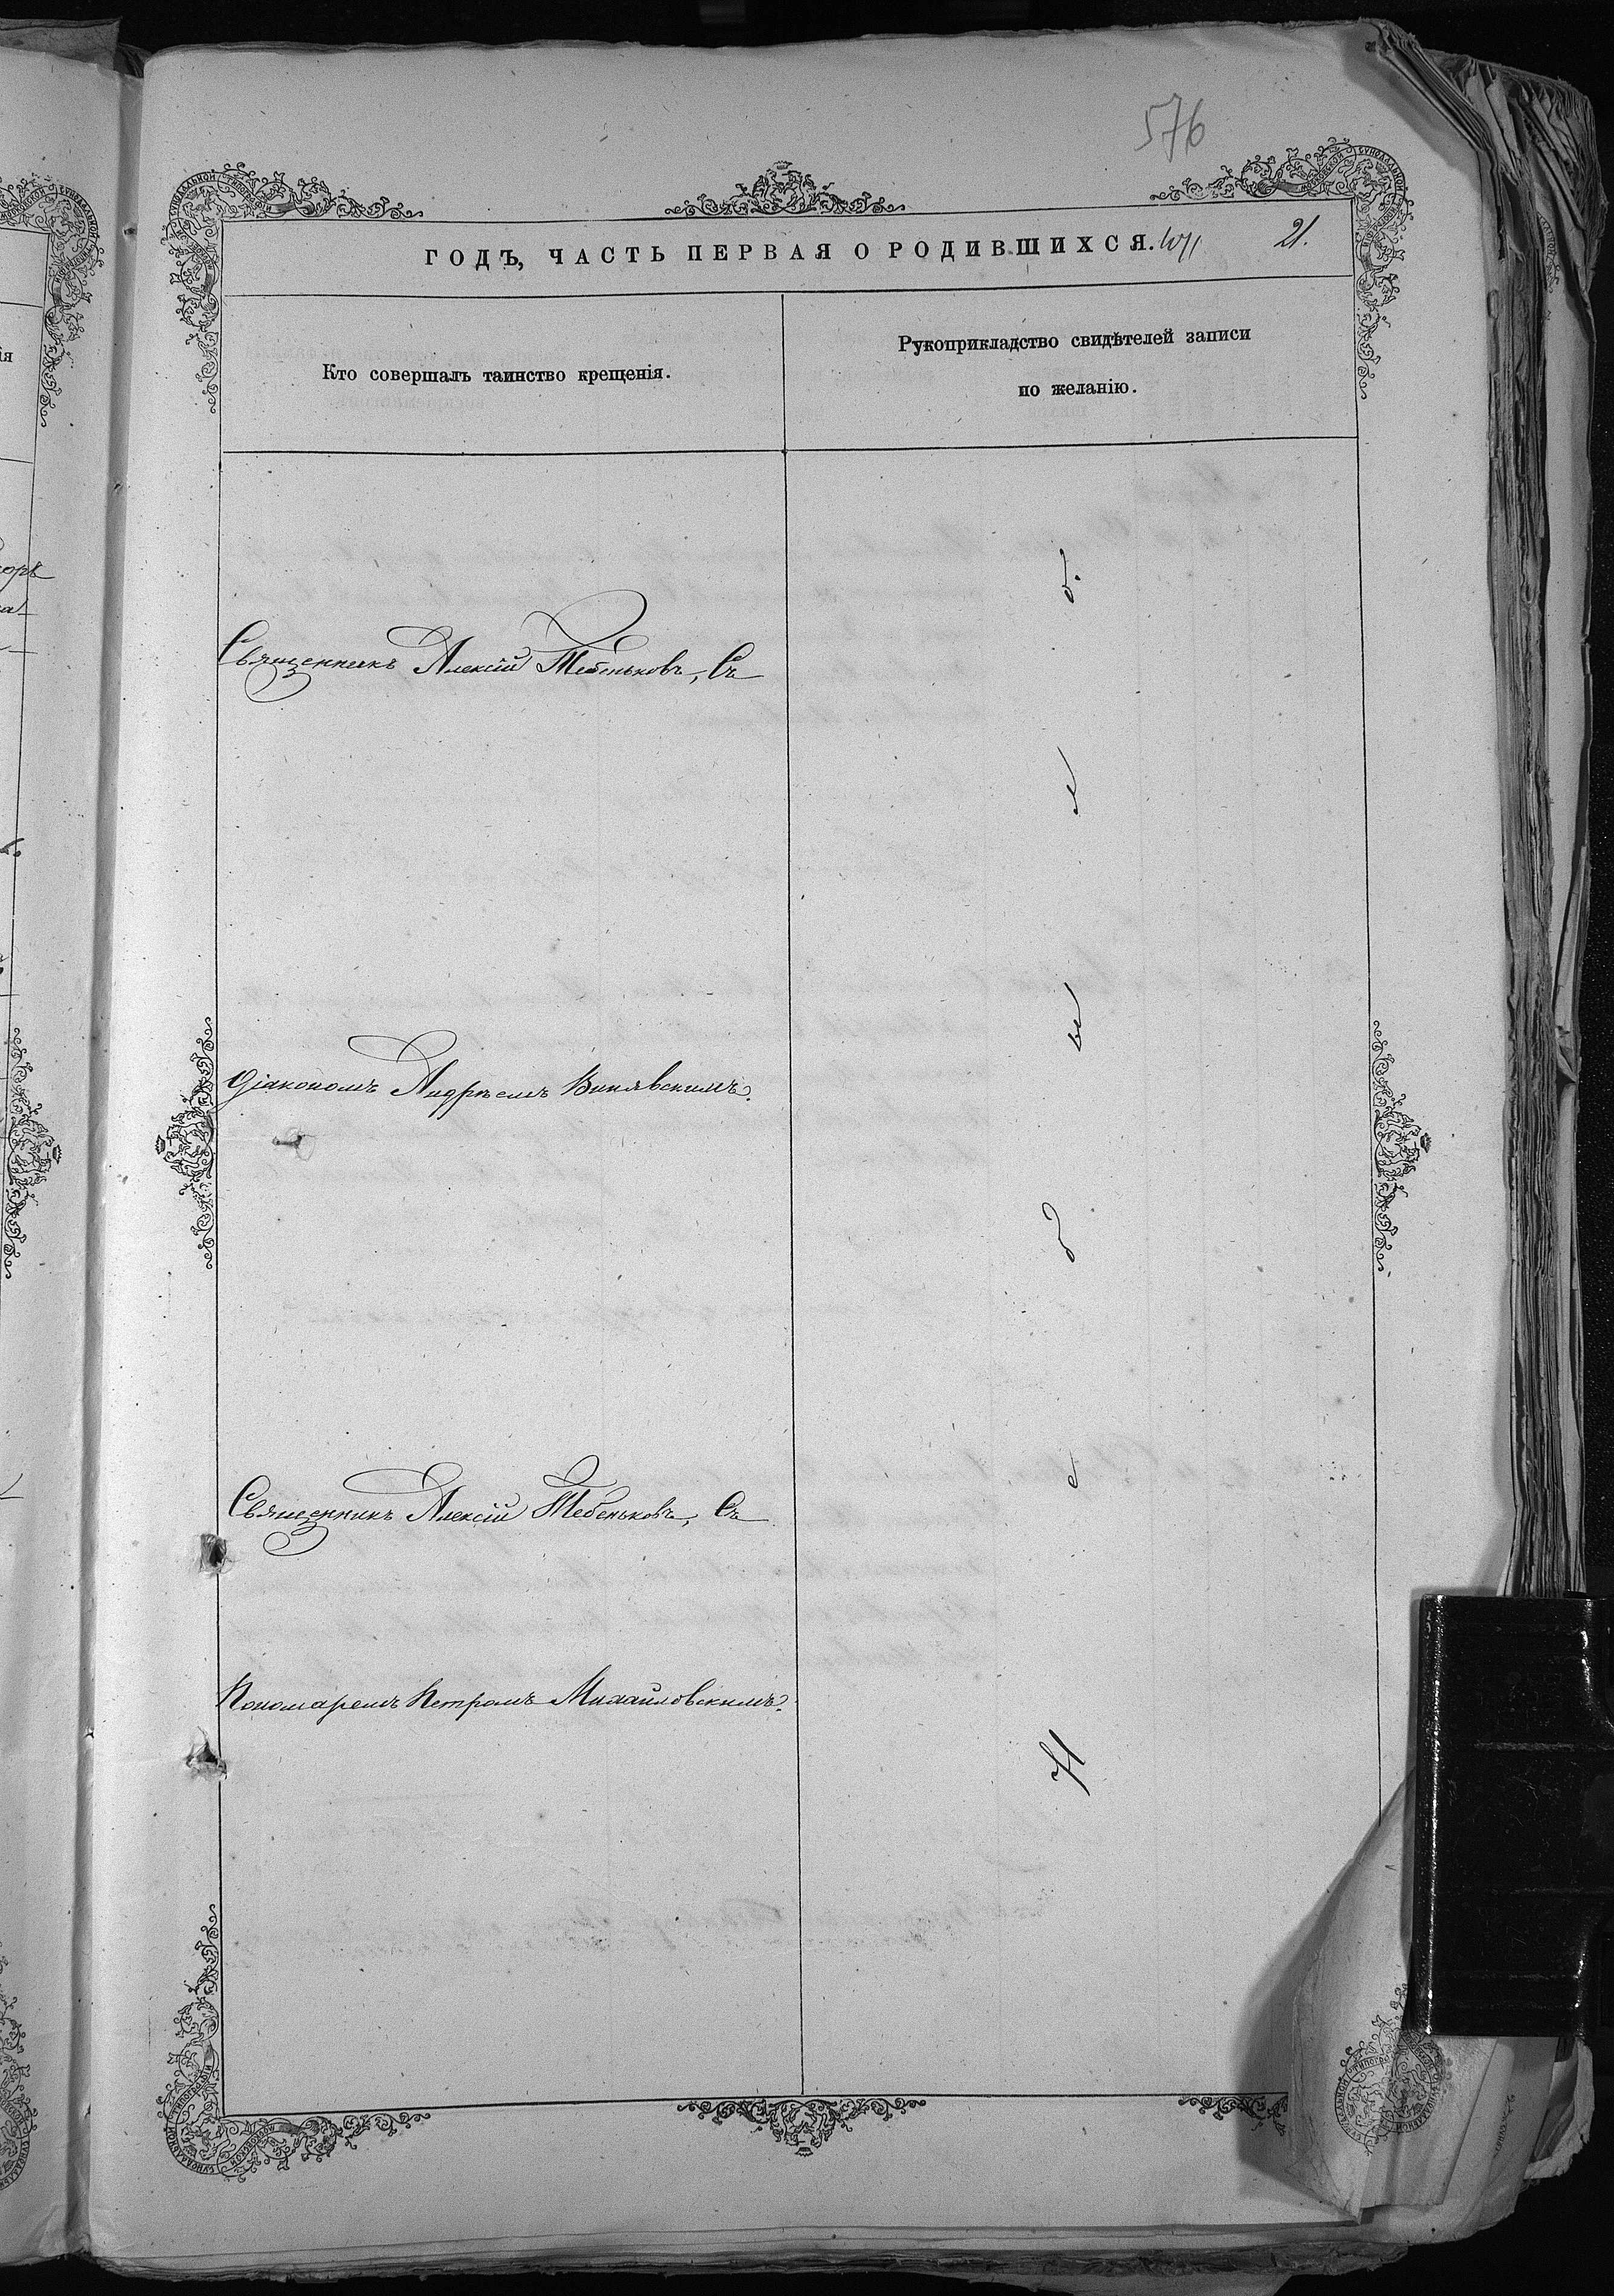 576
ГОДЪ, ЧАСТЬ ПЕРВАЯ О РОДИВШИХСЯ.
21.
Кто совершалъ таинство крещенія.
Рукоприкладство свидѣтелей записи
по желанію.
Священникъ Алексій Тебеньковъ, Съ
Діакономъ Андреемъ Винявскимъ.
Священникъ Алексій Тебеньковъ, Съ
Пономаремъ Петромъ Михайловскимъ.